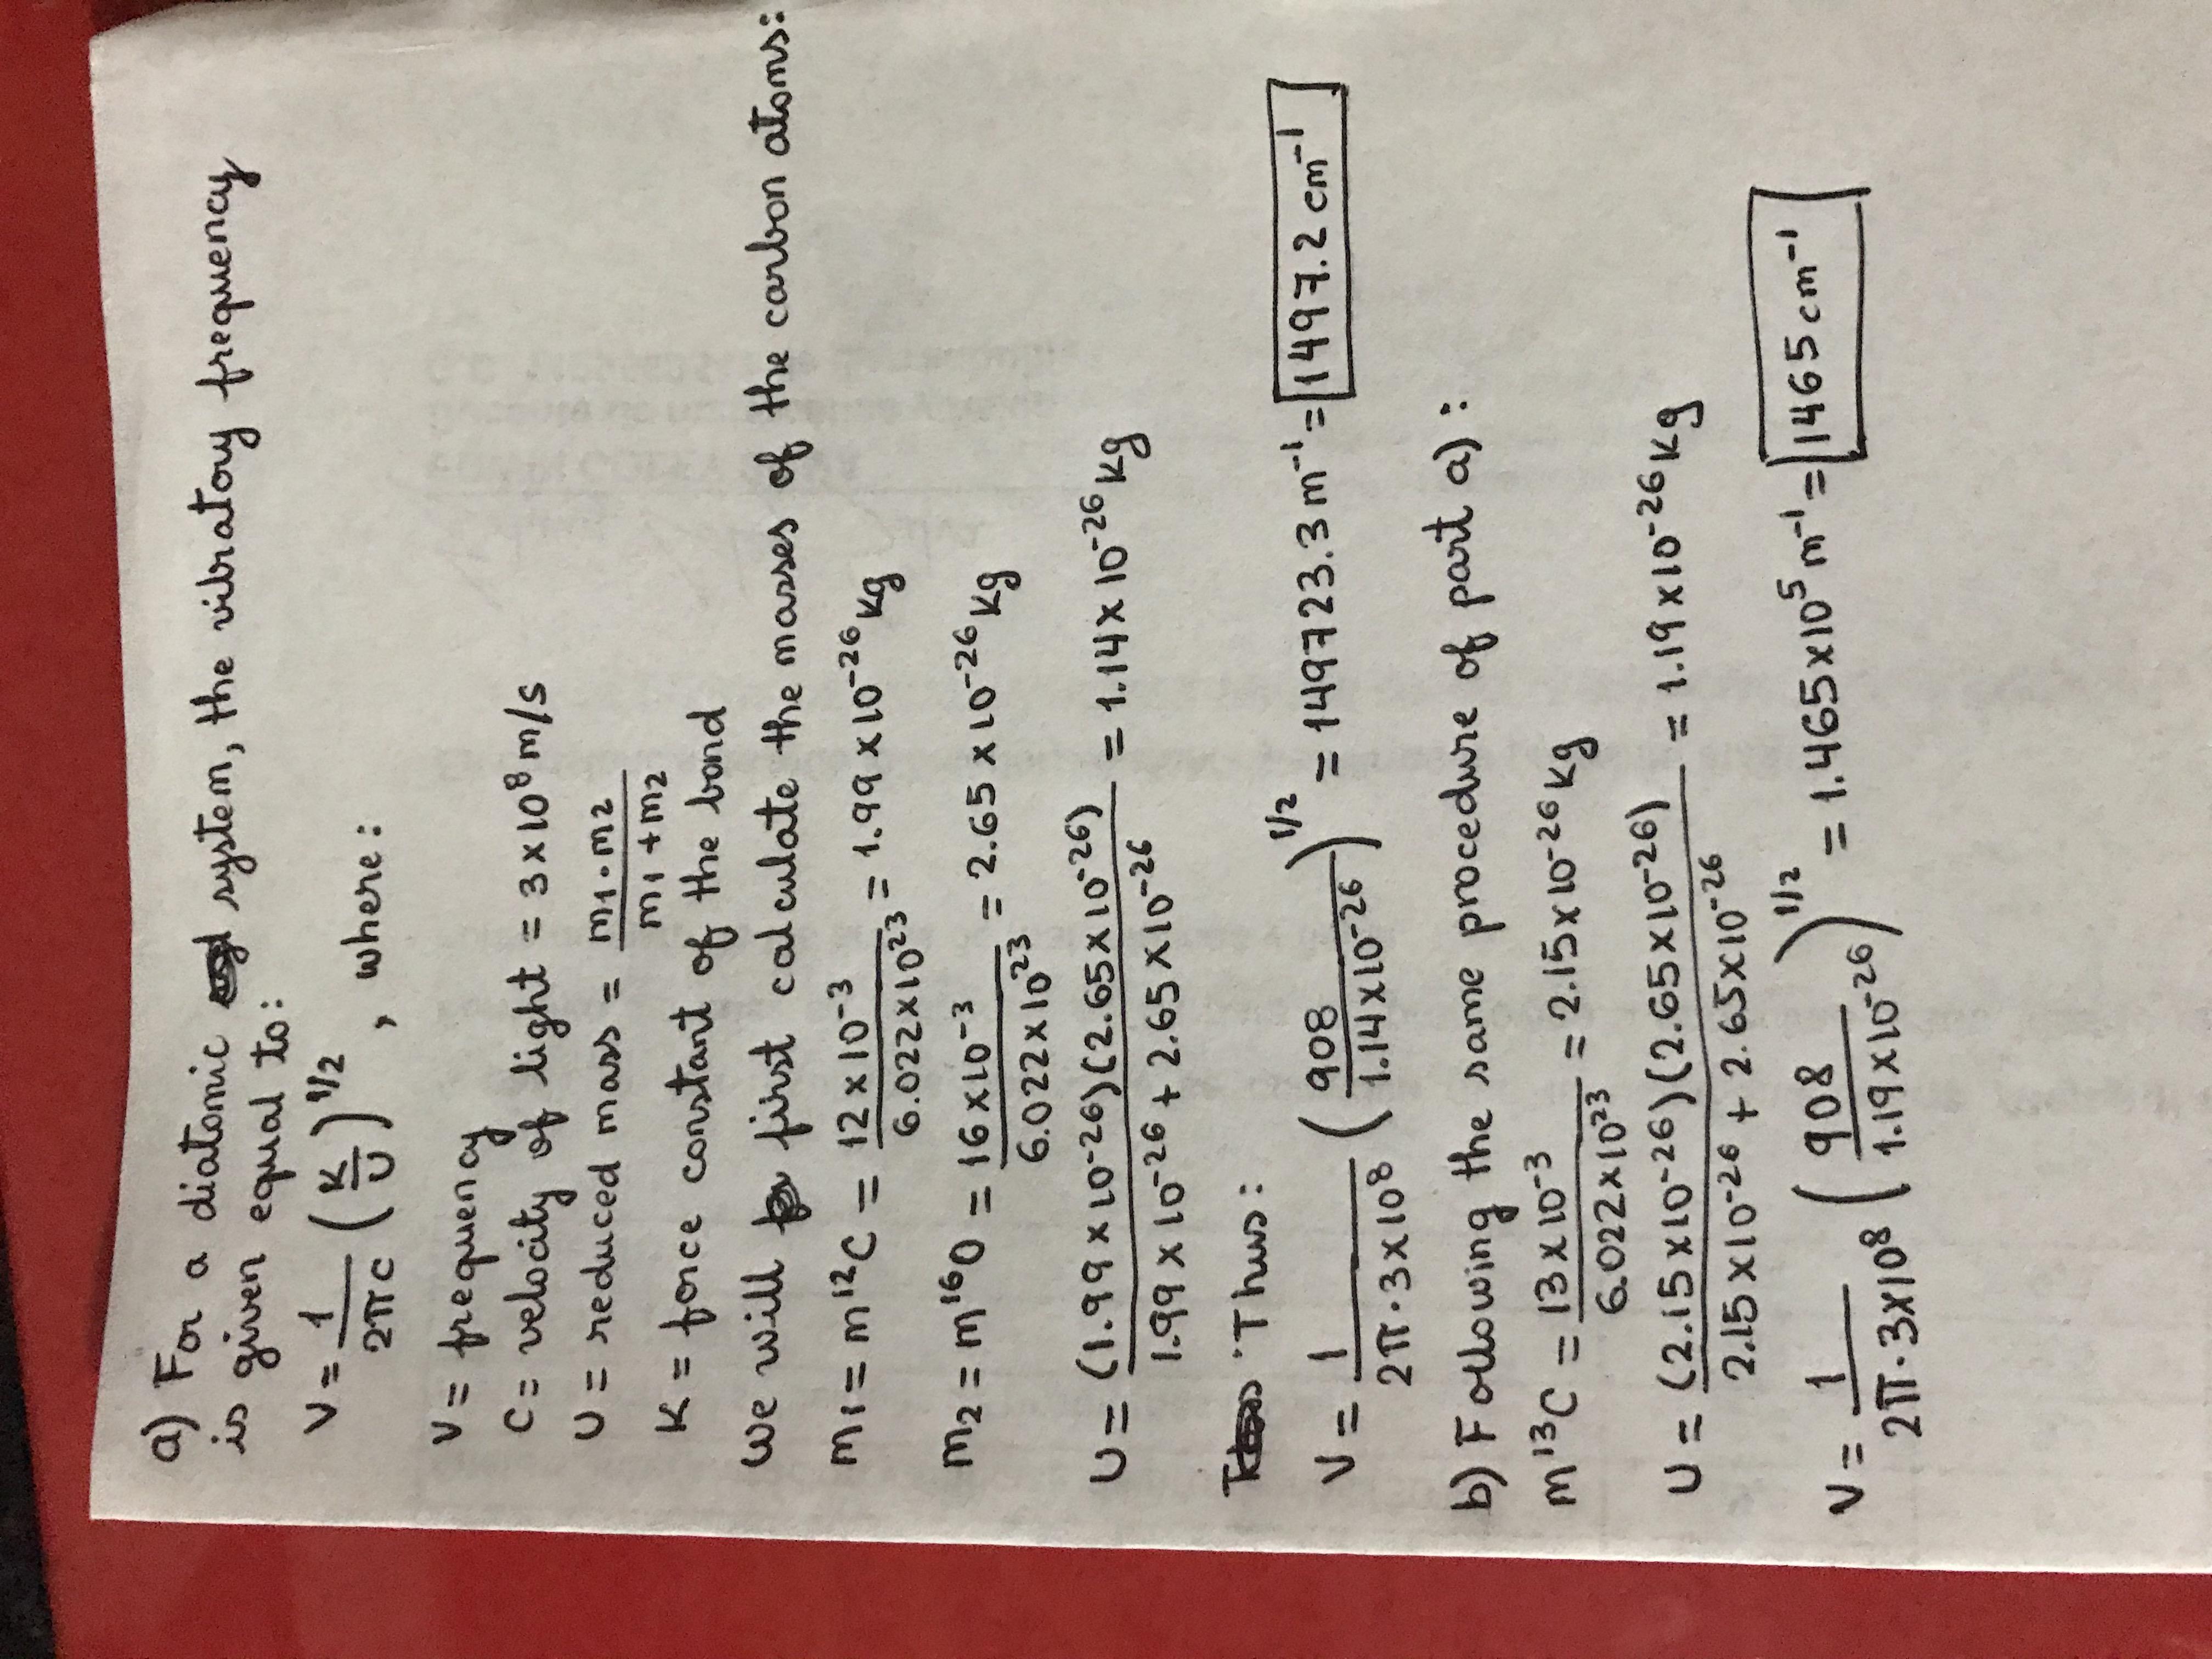 a) For a diatomic system, the vibratory frequency
is given equal to:
V = 1/2πc (K/U)^1/2 , where:
V = frequency
C = velocity of light = 3 x 10^8 m/s
U = reduced mass = m1 · m2 / m1 + m2
K = force constant of the bond
We will first calculate the masses of the carbon atoms:
m1 = m^12C = 12 x 10^-3 / 6.022 x 10^23 = 1.99 x 10^-26 Kg
m2 = m^16O = 16 x 10^-3 / 6.022 x 10^23 = 2.65 x 10^-26 Kg
U = (1.99 x 10^-26)(2.65 x 10^-26) / 1.99 x 10^-26 + 2.65 x 10^-26 = 1.14 x 10^-26 Kg
Thus:
V = 1 / 2π · 3 x 10^8 (908 / 1.14 x 10^-26)^1/2 = 149723.3 m^-1 = 1497.2 cm^-1
b) Following the same procedure of part a):
m^13C = 13 x 10^-3 / 6.022 x 10^23 = 2.15 x 10^-26 Kg
U = (2.15 x 10^-26)(2.65 x 10^-26) / 2.15 x 10^-26 + 2.65 x 10^-26 = 1.19 x 10^-26 Kg
V = 1 / 2π · 3 x 10^8 (908 / 1.19 x 10^-26)^1/2 = 1.465 x 10^5 m^-1 = 1465 cm^-1